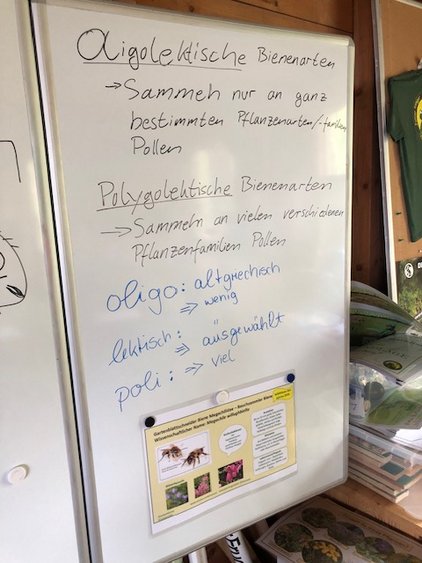 Oligolektische Bienenarten
→ Sammeln nur an ganz
bestimmten Pflanzenarten/-familien
Pollen
Polygolektische Bienenarten
→ Sammeln an vielen verschiedenen
Pflanzenfamilien Pollen
oligo: altgriechisch
⇒ wenig
lektisch:
⇒ ausgewählt
poli: ⇒ viel
Gartenblattschneider-Biene Megachilidae -
Wissenschaftlicher Name: Megachile willughbiella